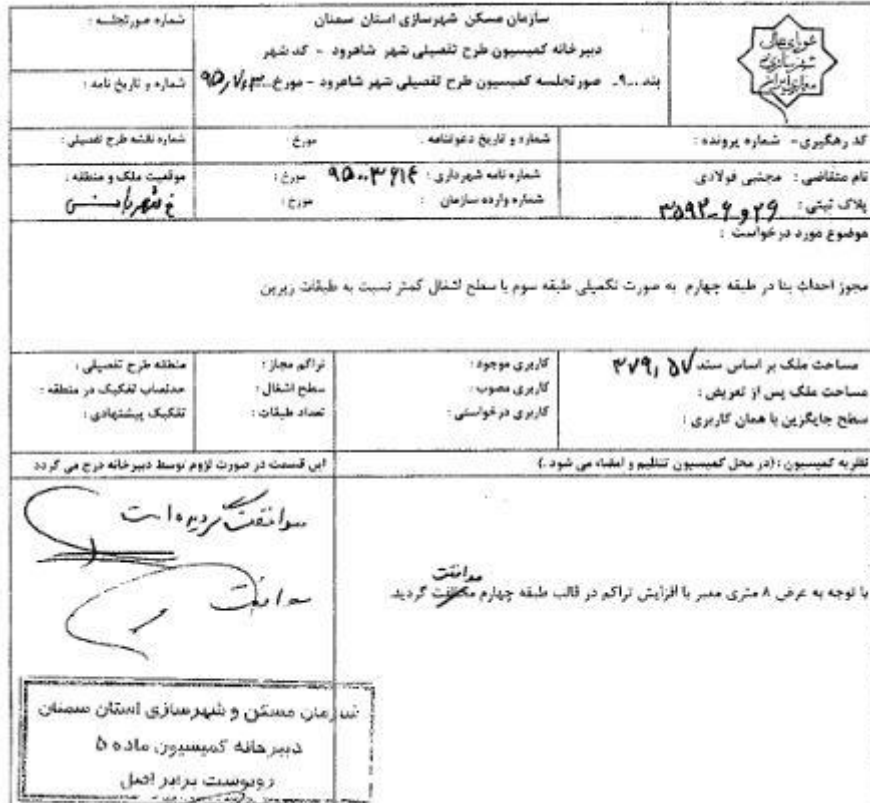 شورای عالی
شهرسازی و
معماری ایران
سازمان مسکن شهرسازی استان سمنان
دبیر خانه کمیسیون طرح تفصیلی شهر شاهرود - کد شهر
بند ..۹.. صورتجلسه کمیسیون طرح تفصیلی شهر شاهرود - مورخ
شماره صورتجلسه :
شماره و تاریخ نامه :
کد رهگیری- شماره پرونده :
شماره و تاریخ دعوتنامه . مورخ :
شماره نقشه طرح تفصیلی :
نام متقاضی : مجتبی فولادی
پلاک ثبتی :
شماره نامه شهرداری : مورخ :
شماره وارده سازمان : مورخ :
موقعیت ملک و منطقه :
موضوع مورد درخواست :
مجوز احداث بنا در طبقه چهارم به صورت تکمیلی طبقه سوم با سطح اشغال کمتر نسبت به طبقات زیرین
مساحت ملک بر اساس سند
مساحت ملک پس از تعریض :
سطح جایگزین با همان کاربری :
کاربری موجود :
کاربری مصوب :
کاربری درخواستی :
تراکم مجاز :
سطح اشغال :
تعداد طبقات :
منطقه طرح تفصیلی :
حدنصاب تفکیک در منطقه :
تفکیک پیشنهادی :
نظریه کمیسیون : (در محل کمیسیون تنظیم و امضاء می شود .)
این قسمت در صورت لزوم توسط دبیرخانه درج می گردد
موافقت
با توجه به عرض ۸ متری معبر با افزایش تراکم در قالب طبقه چهارم مخالفت گردید
موافقت گردیده است
موافقت
سازمان مسکن و شهرسازی استان سمنان
دبیرخانه کمیسیون ماده ۵
رونوشت برابر اصل